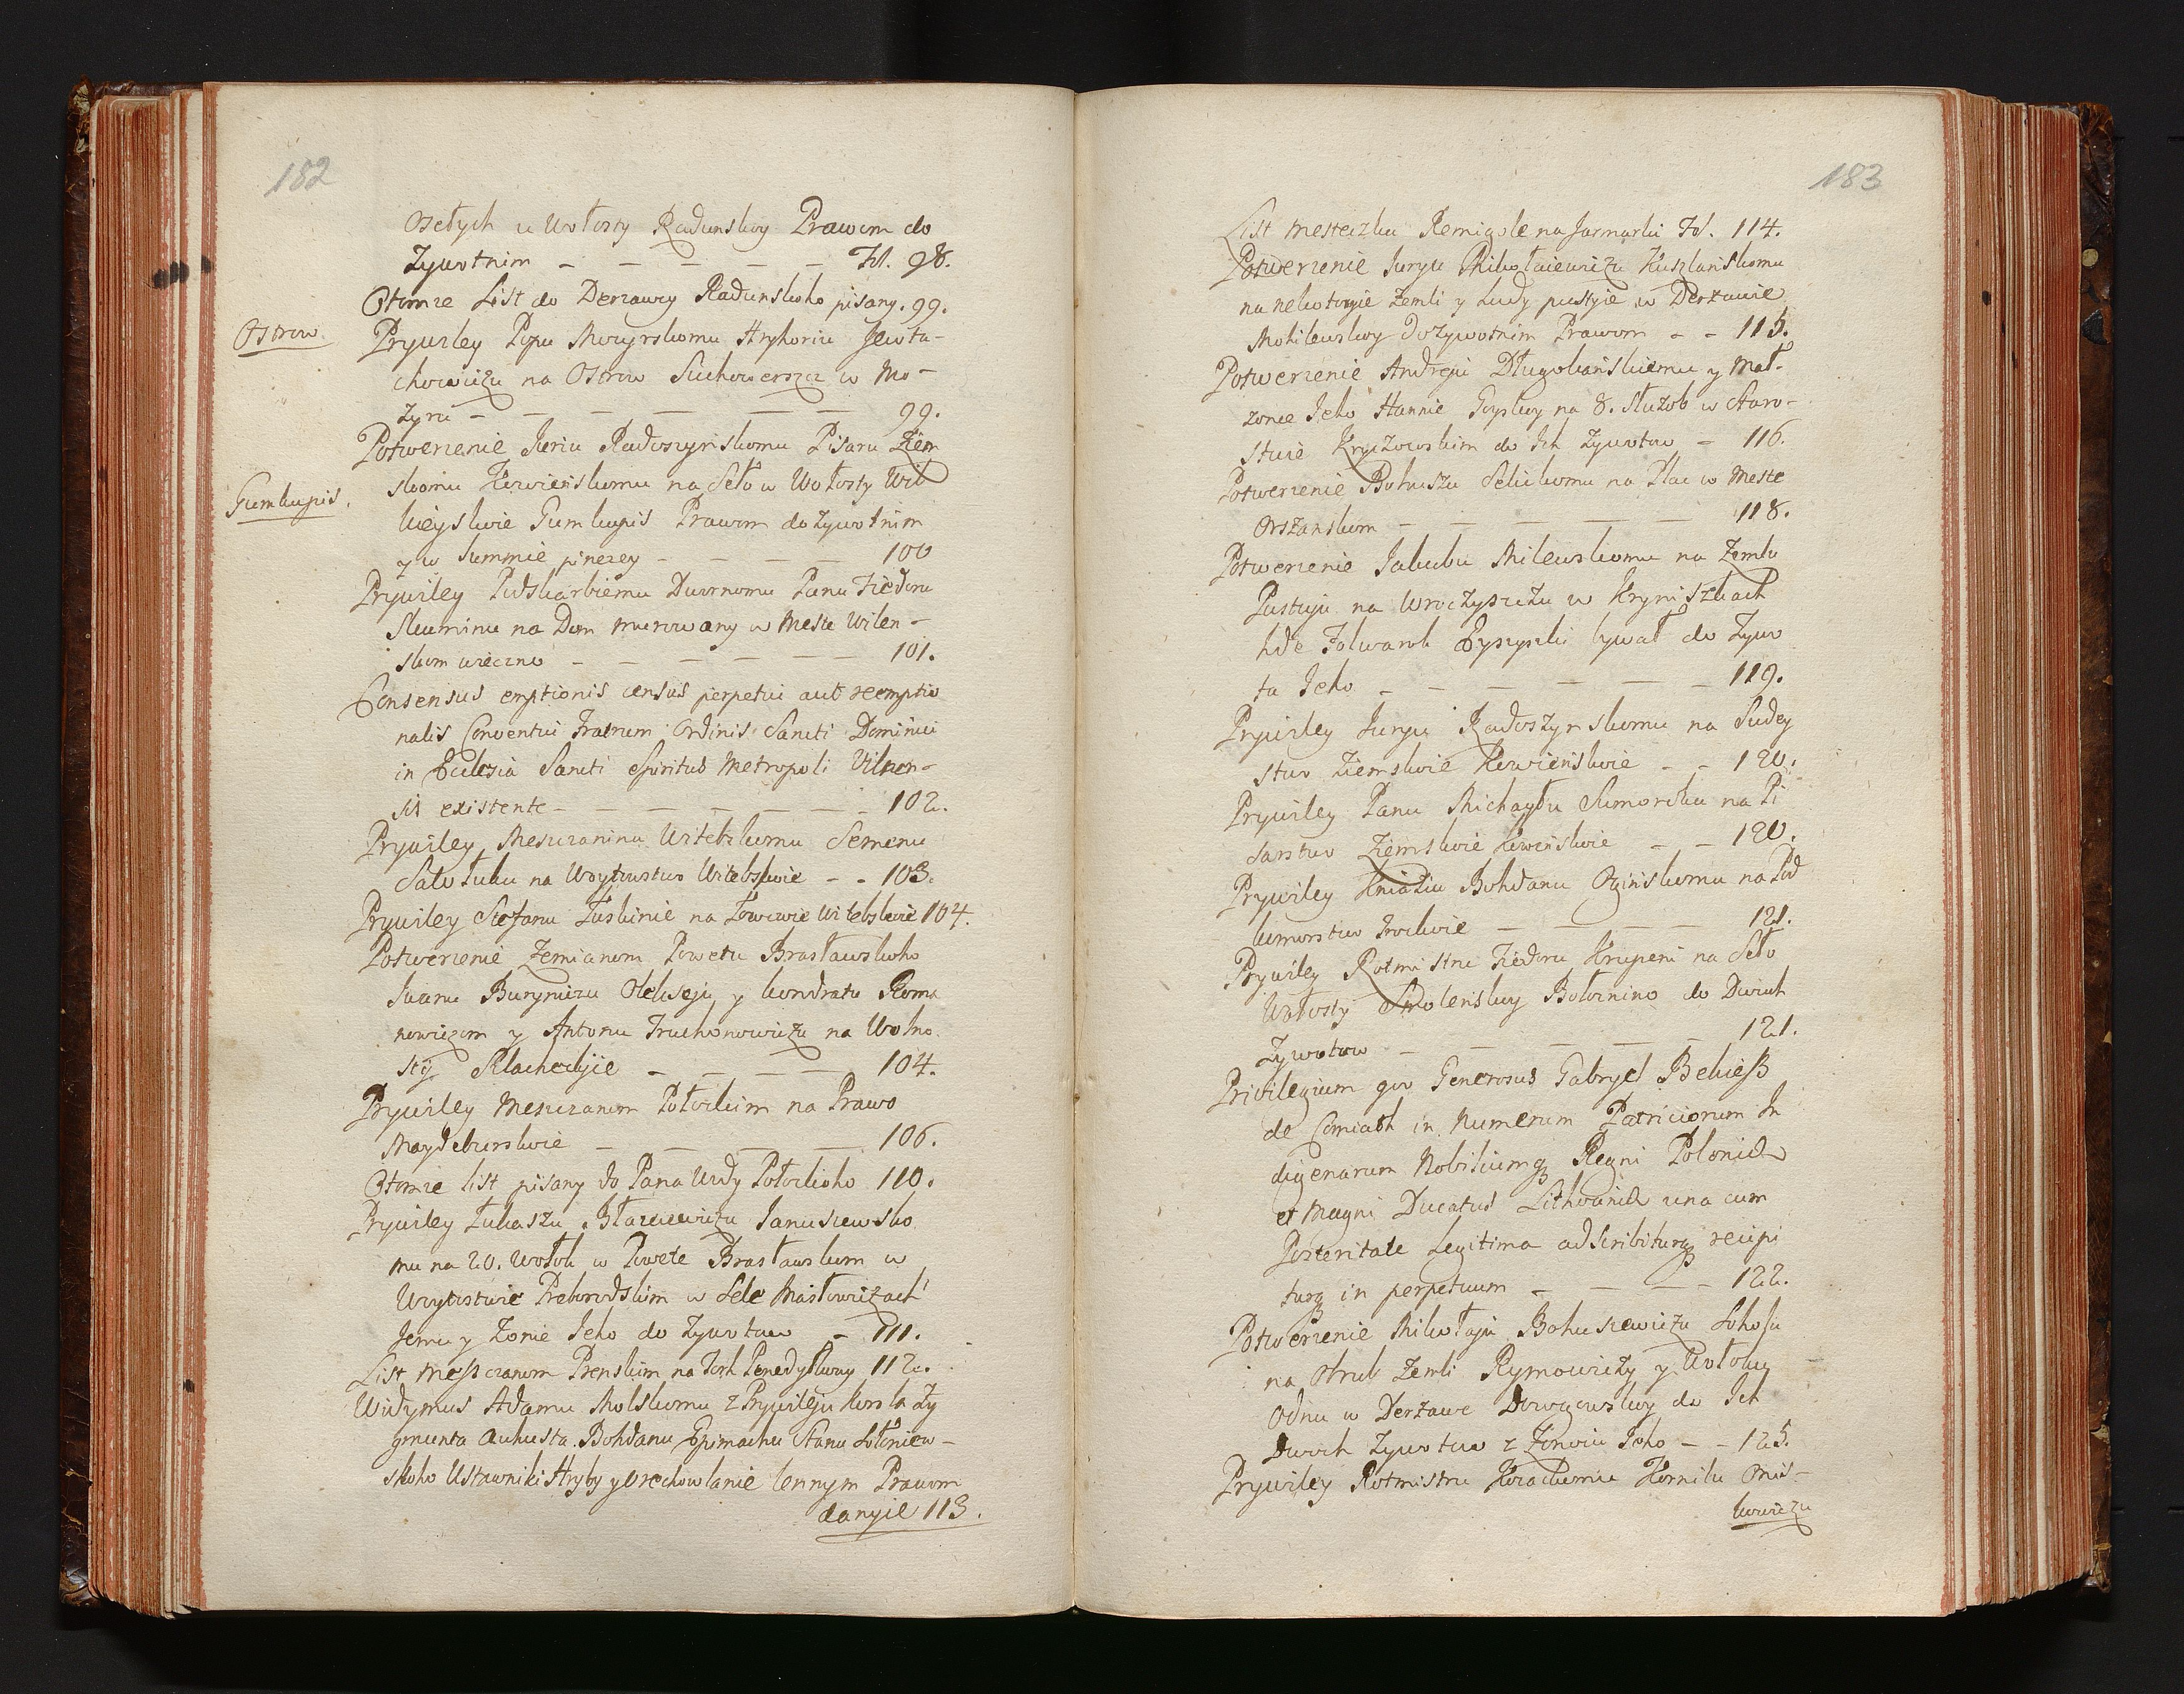 182
Osełych u Wołosty Radunskoy Prawom do
Żywotnim - - - - - - Fol. 98.
O tomże List do Derżawcy Radunskoho pisany. 99.
Ostrow.
Prywiley Popu Mozyrskomu Hryhoriu Jewta-
chowiczu na Ostrow Suchowerszcz w Mo-
zyru - - - - - - - 99.
Potwerżenie Juriu Radoszynskomu Pisaru Ziem
skomu Kowienskomu na Seło w Wołosty Wil
Gumkupis.
kieyskoie Gumkupis Prawom dożywotnim
y w Summie pinezey - - - - 100
Prywiley Podskarbiemu Dwornomu Panu Fiedoru
Skuminu na Dom murowany w Meste Wilen-
skom wieczno - - - - - - 101.
Consensus emptionis census perpetui aut reemptio
nalis Conventui Fratrum Ordinis Sancti Dominici
in Eclesia Sancti Spiritus Metropoli Vilnen-
sis existente - - - - - - 102.
Prywiley Meszczaninu Witebskomu Semenu
Sałotuku na Woytowstwo Witebskoie - - 103.
Prywiley Stefanu Łuskinie na Łowczoie Witebskoie 104.
Potwerżenie Zemianom Powetu Brasławskoho
Iwanu Buryniczu Olekseju y Kondratu Roma
nowiczom y Antonu Truchonowiczu na Wolno
sty Szlacheckije - - - - 104.
Prywiley Meszczanom Połockim na Prawo
Maydeburskoie - - - - - 106.
O tomże list pisany do Pana Wdy Połockoho 110.
Prywiley Łukaszu Błażeiewiczu Januszewsko
mu na 20. Wołok w Powete Brasławskom w
Woytostwie Prebrodskim w Sele Masłowiczach
Jemu y Żonie Jeho do Żywotow - 111.
List Meszczanom Prenskim na Torh Ponedyłkowy 112.
Widymus Adamu Molskomu z Prywileju Korola Zy
gmunta Auhusta Bohdanu Epimachu Stanu Słoniew-
skoho Ustawniki Hryby y Orechowlanie lennym Prawom
danyie 113.
183
List mesteczku Remigole na Jarmarki Fol. 114.
Potwerżenie Juryu Mikołaiewiczu Kuszlanskomu
na nekotoryie Zemli y Ludy pustyie w Derżawie
Mohilewskoy dożywotnim Prawom - - 115.
Potwerżenie Andreju Długokanskiemu y Mał-
żonce Jeho Hannie Gryskoy na 8. Służob w Staro-
stwie Kryczowskim do Ich Żywotow - 116.
Potwerżenie Bohuszu Selickomu na Plac w Meste
Orszanskom - - - - - 118.
Potwerżenie Jakubu Milewskomu na Zemlu
Pustuju na Uroczyszczu w Kryniszkach
hde Folwark Pyszyszki bywał do Żywo
ta Jeho - - - - - - 119.
Prywiley Juryu Radoszynskomu na Sudey
stwo Ziemskoie Kowienskoie - - 120.
Prywiley Panu Michayłu Sumorоku na Pi
sarstwo Ziemskoie Kowenskoie - - 120.
Prywiley Kniaziu Bohdanu Oginskomu na Pod
komorstwo Trockoie - - - - 121.
Prywiley Rotmistru Fiedoru Krupeni na Seło
Wołosty Smolenskoy Bołwnino do Dwuch
Żywotow - - - - - 121.
Privilegium quo Generosus Gabryel Bekieß
de Corniath in Numerum Patriciorum In
digenarum Nobiliumqz Regni Poloniæ
et Magni Ducatus Lithvaniæ una cum
Posteritate Legitima adscribiturqz recipi
turqz in perpetuum - - - - 122.
Potwerżenie Mikołaju Bohuszewiczu
na Otrub Zemli Rymowiczy y Wołoku
Odnu w Derżawe Dowgowskoy do Ich
Dwoch Żywotow z Żonoiu Jeho - - 125.
Prywiley Rotmistru Kozackomu Kornilu Onis-
kowiczu